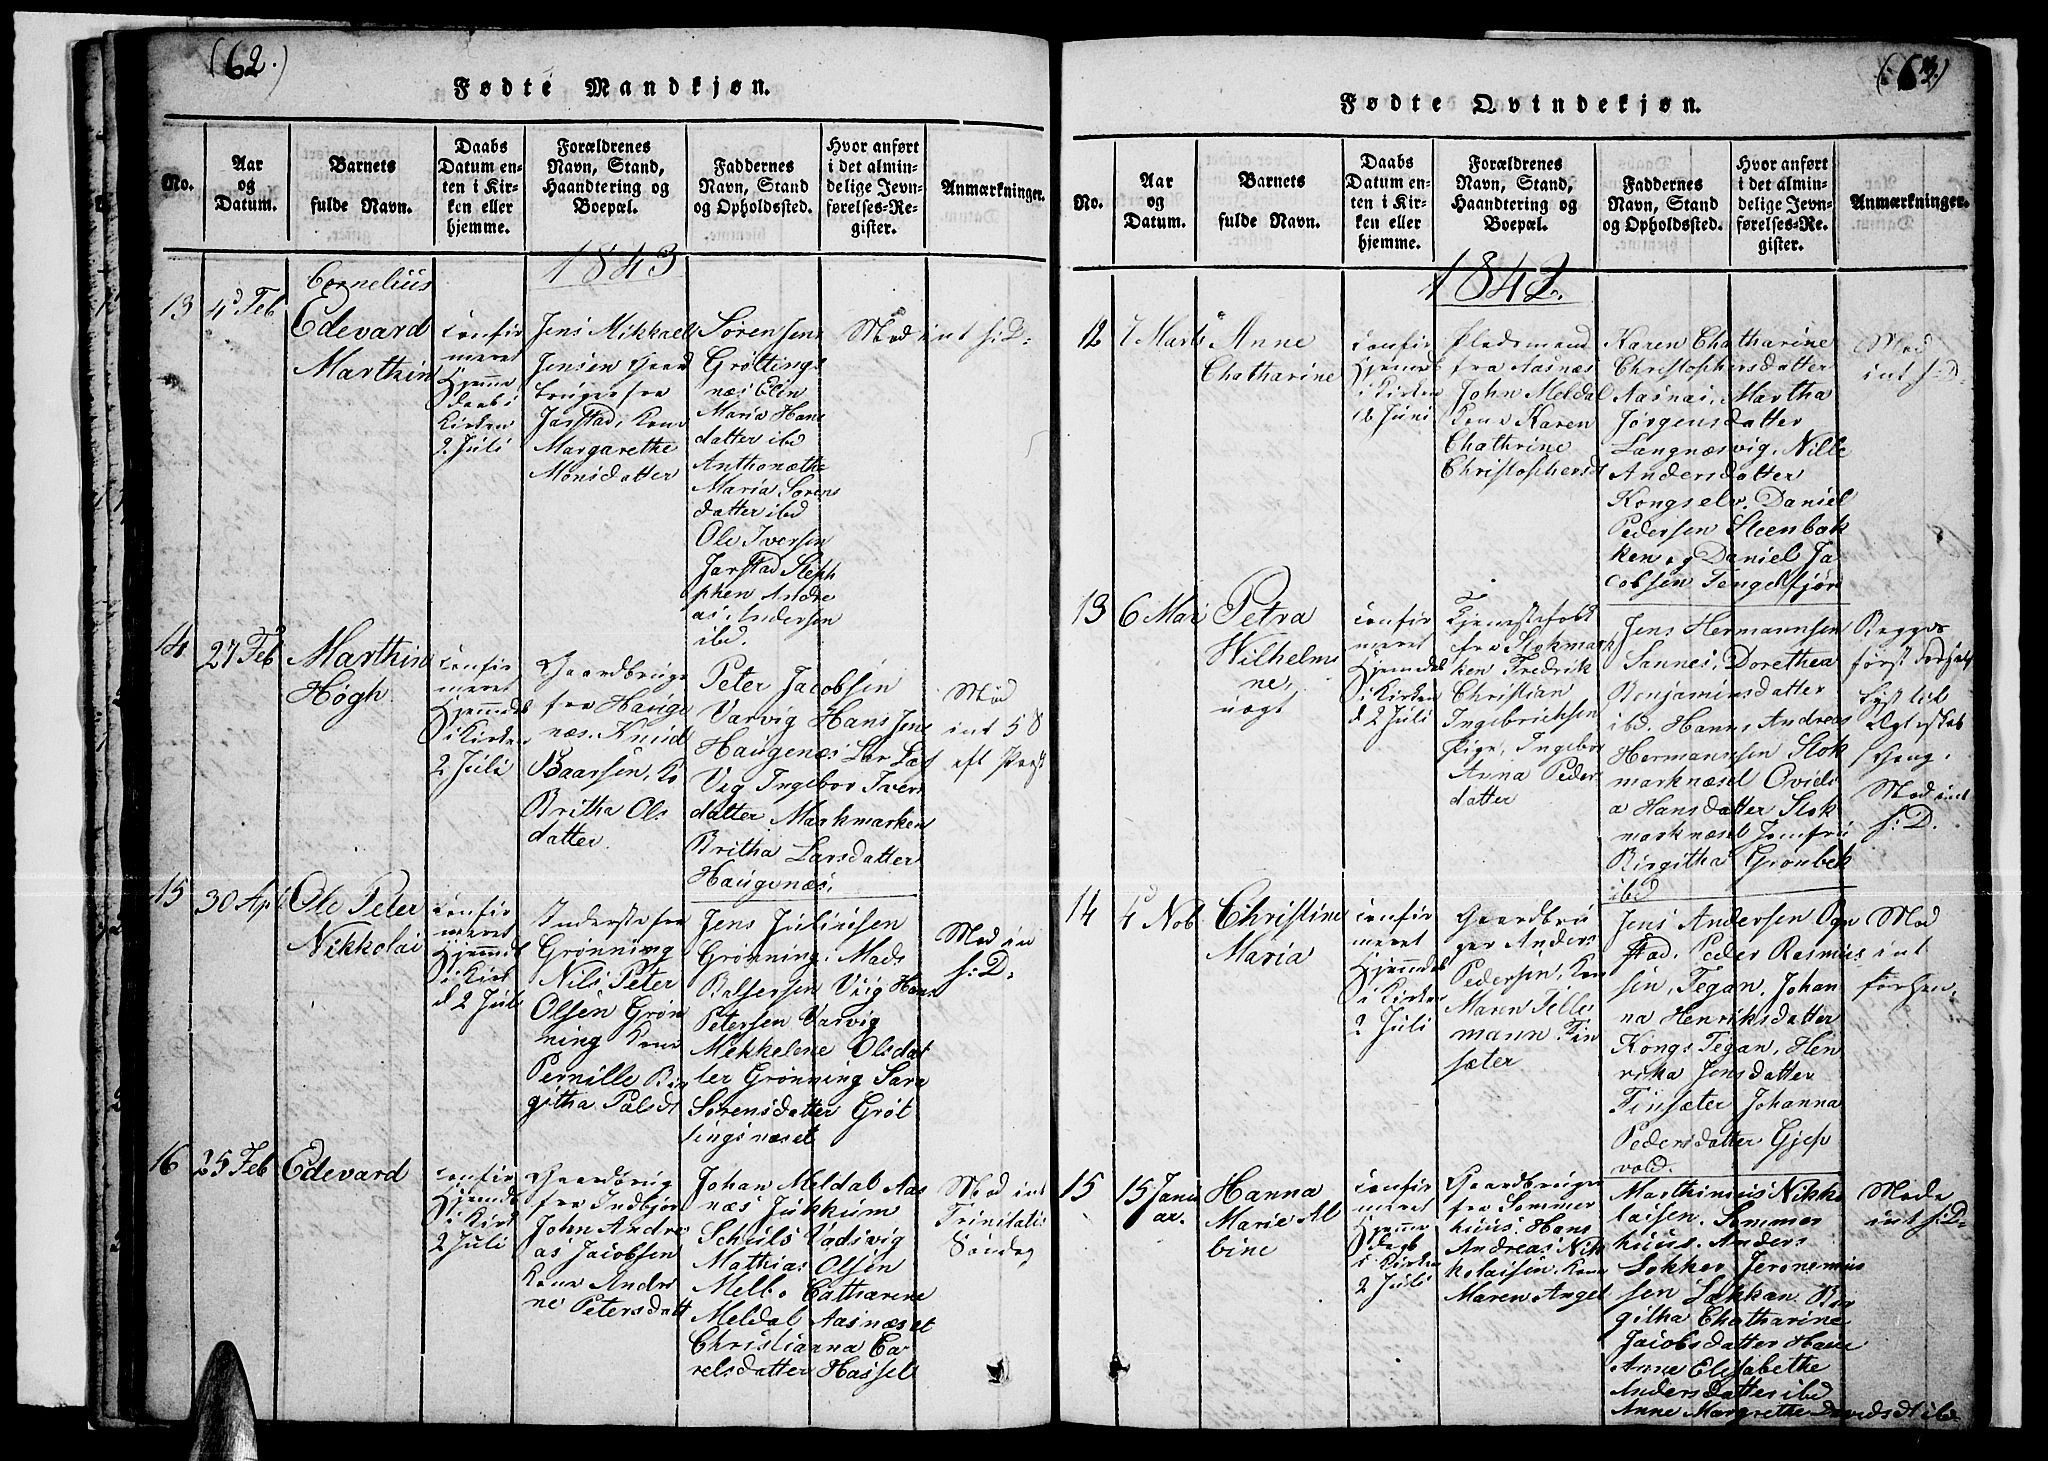 (62.)
Fødte Mandkjøn.
No.
Aar
og
Datum.
Barnets
fulde Navn.
Daabs
Datum en-
ten i Kir-
ken eller
hjemme.
Forældrenes
Navn, Stand,
Haandtering og
Boepæl.
Faddernes
Navn, Stand
og Opholdssted.
Hvor anført
i det almin-
delige Jevn-
førelses-Re-
gister.
Anmærkninger.
1843
13
4d Feb
Cornelius
Edevard
Marthin
Confir
meret
Hjemme
Daab i
Kirken
2 Juli
Jens Mikkael
Jensen Gaard
bruger fra
Jarstad, Kone
Margarethe
Monsdatter
Søren Jens
Grøtting
næs Elin
Maria Hans
datter ibd
Anthonæthe
Maria Sørens
datter ibd
Ole Iversen
Jarstad Steph
phen Andre
as Andersen
ibd.
Mod int S:D:
14
27 Feb
Marthin
Høgh
Confir
meret
Hjemdøb
i Kirken
2 Juli
Gaardbruge
fra Hauge
næs. Knud
Baarsen, Ko
Britha Ols
datter.
Peter Jacobsen
Varvig Hans Jens
Haugenæs Lar Las
Vig Ingebor Ivers
datter Markmarken
Britha Larsdatter
Haugenæs.
Mod
int 5 S
eft Paask
15
30 Apl
Ole Peter
Nikkolai
Confir
meret
Hjemmed
i Kirk
d 2 Juli
Inderste fra
Grønning
Nils Peter
Olsen Grøn
ning Kone
Pernille Bir
githa Palsdt
Jens Juliusen
Grønning, Mads
Balsersen Viig Hans
Petersen Varvig
Mekkelene Olsdat
ter Grønning Sara
Sørensdatter Grøt
tingsnæset
Mod in
S:D:
16
25 Feb
Edevard
Confir
Hjemdø
i Kirk
2 Juli
Gaardbrug
fra Indbjor
John Andre
as Jacobsen
Kone Andri
ne Petersdatt
Johan Meldal Aas
næs Jukkum
Schuls Vadsvig
Mathias Olsen
Melbo Catharine
Meldal Aasnæset
Christianna Ca-
relsdatter Hassel
Mod int
Trinitatis
Søndag
(63.)
Fødte Qvindekjøn.
No.
Aar
og
Datum.
Barnets
fulde Navn.
Daabs
Datum en-
ten i Kir-
ken eller
hjemme.
Forældrenes
Navn, Stand,
Haandtering og
Boepæl.
Faddernes
Navn, Stand
og Opholdssted.
Hvor anført
i det almin-
delige Jevn-
førelses-Re-
gister.
Anmærkninger.
12
7 Marts
Anne
Chatharine
Confir
Hjemd
i Kirken
16 Juni
Pladsmand
fra Aasnæs
John Meldal
Kone Karen
Chathrine
Christophersd
Karen Chatharine
Christophersdatter
Aasnæs, Martha
Jørgensdatter
Langnæsvig, Nille
Andersdatter
Kongselv. Daniel
Pedersen Steenbak
ken og Daniel Ja
cobsen Tengelfjør
Mod
int S:D:
13
6 Mai
Petra
Wilhelmi
ne,
uægt
Confir
meret
Hjemdøb
i Kirken
d 2 Juli
Tjenestefolk
fra Stokmark
ken Fredrik
Christian
Ingebrichsen
Pige, Ingebor
Anna Peder
datter
Jens Hermannsen
Sannes, Dorethea
Benjaminsdatter
ibd. Hanns Andreas
Hermannsen Stok
marknæset Ovidi
a Hansdatter Stok
marknæset Jomfru
Birgitha Grønbek
ibd
Begges
først
Mod int
S:D.
14
4 Nob
Christine
Maria
Confir
meret
Hjemdøb
i Kirken
2 Juli
Gaardbru
ger Anders
Pedersen, Kon
Marn Tille
mann Fin
sæter
Jens Andersen Ogn
stad. Peder Rasmus
sen, Tegan. Johan
na Henriksdatter
Kongs Tegan, Hen
rika Jensdatter
Finsæter Johanna
Pedersdatter Gjes
vold.
Mod
int
forhen.
15
15 Janu
ar.
Hanna
Marie Al
bine
Confir
meret
Hjemme
Daab
i Kirken
2 Juli
Gaardbruger
fra Sommer
huus. Hans
Andreas Nik
kolaisen, Kone
Maren Angel
Marthinius Nikko
laisen. Sommer
huus. Anders
Sokker Jeronemius
sen Søkkan Bir
githa Chatharine
Jacobsdatter Hanne
Anne Elisabethe
Andersdatter ibd
Anne Margrethe Davidsdt ibd
Mode
int S:D: